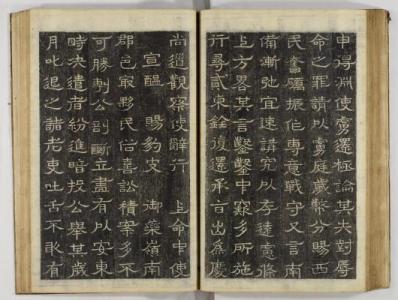 申得淵使虜還極論其失對辱
命之罪請以虜庭歲幣分賜西
民奮厲振作專意戰守又言南
備漸弛宜速講究以存遠慮條
上方畧其言鑿鑿中窾多所施
行尋貳東銓復還承旨出爲慶
尚道觀察使辭行 上命中使
宣醞 賜豹皮 御藥嶺南
郡邑最夥民俗喜訟積案多不
可勝制公剖斷立盡有以安東
時決遣者紛進暗投公擧其歲
月叱退之諸老吏吐舌不敢有